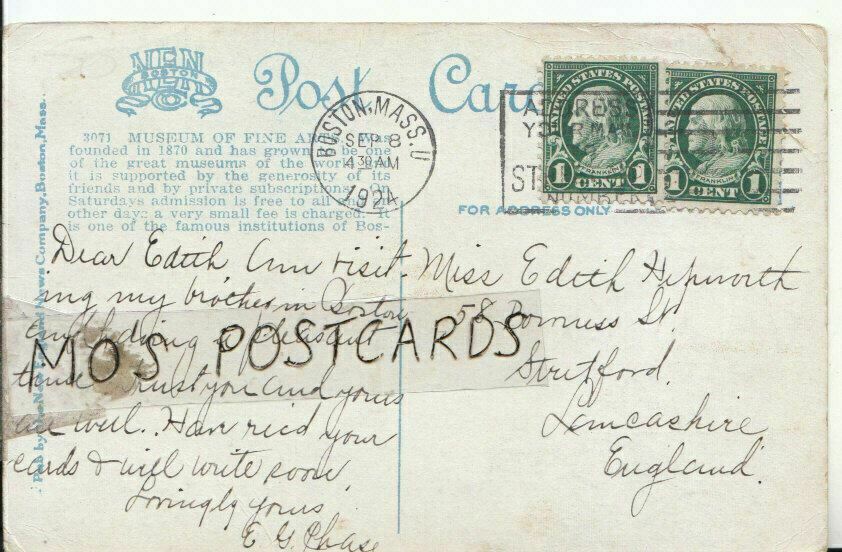 NEN
BOSTON
Post Card
3071 MUSEUM OF FINE ARTS. Was
founded in 1870 and has grown to be one
of the great museums of the world.
it is supported by the generosity of its
friends and by private subscriptions. On
Saturdays admission is free to all
other days a very small fee is charged. It
is one of the famous institutions of Bos-
Pub by
News Company, Boston, Mass.
BOSTON, MASS. U
SEP 8
4 30 AM
1924
ADDRESS
ST
UNITED STATES POSTAGE
FRANKLIN
1 CENT 1
UNITED STATES POSTAGE
FRANKLIN
1 CENT 1
FOR ADDRESS ONLY
Dear Edith Am visit-
ing my brother in Boston
and having a pleasant
time Trust you and yours
are well. Have recd your
cards & will write soon.
Lovingly yours
E G. Chase
Miss Edith Hepworth
58 Bowness St.
Stretford.
Lancashire
England.
MOS POSTCARDS